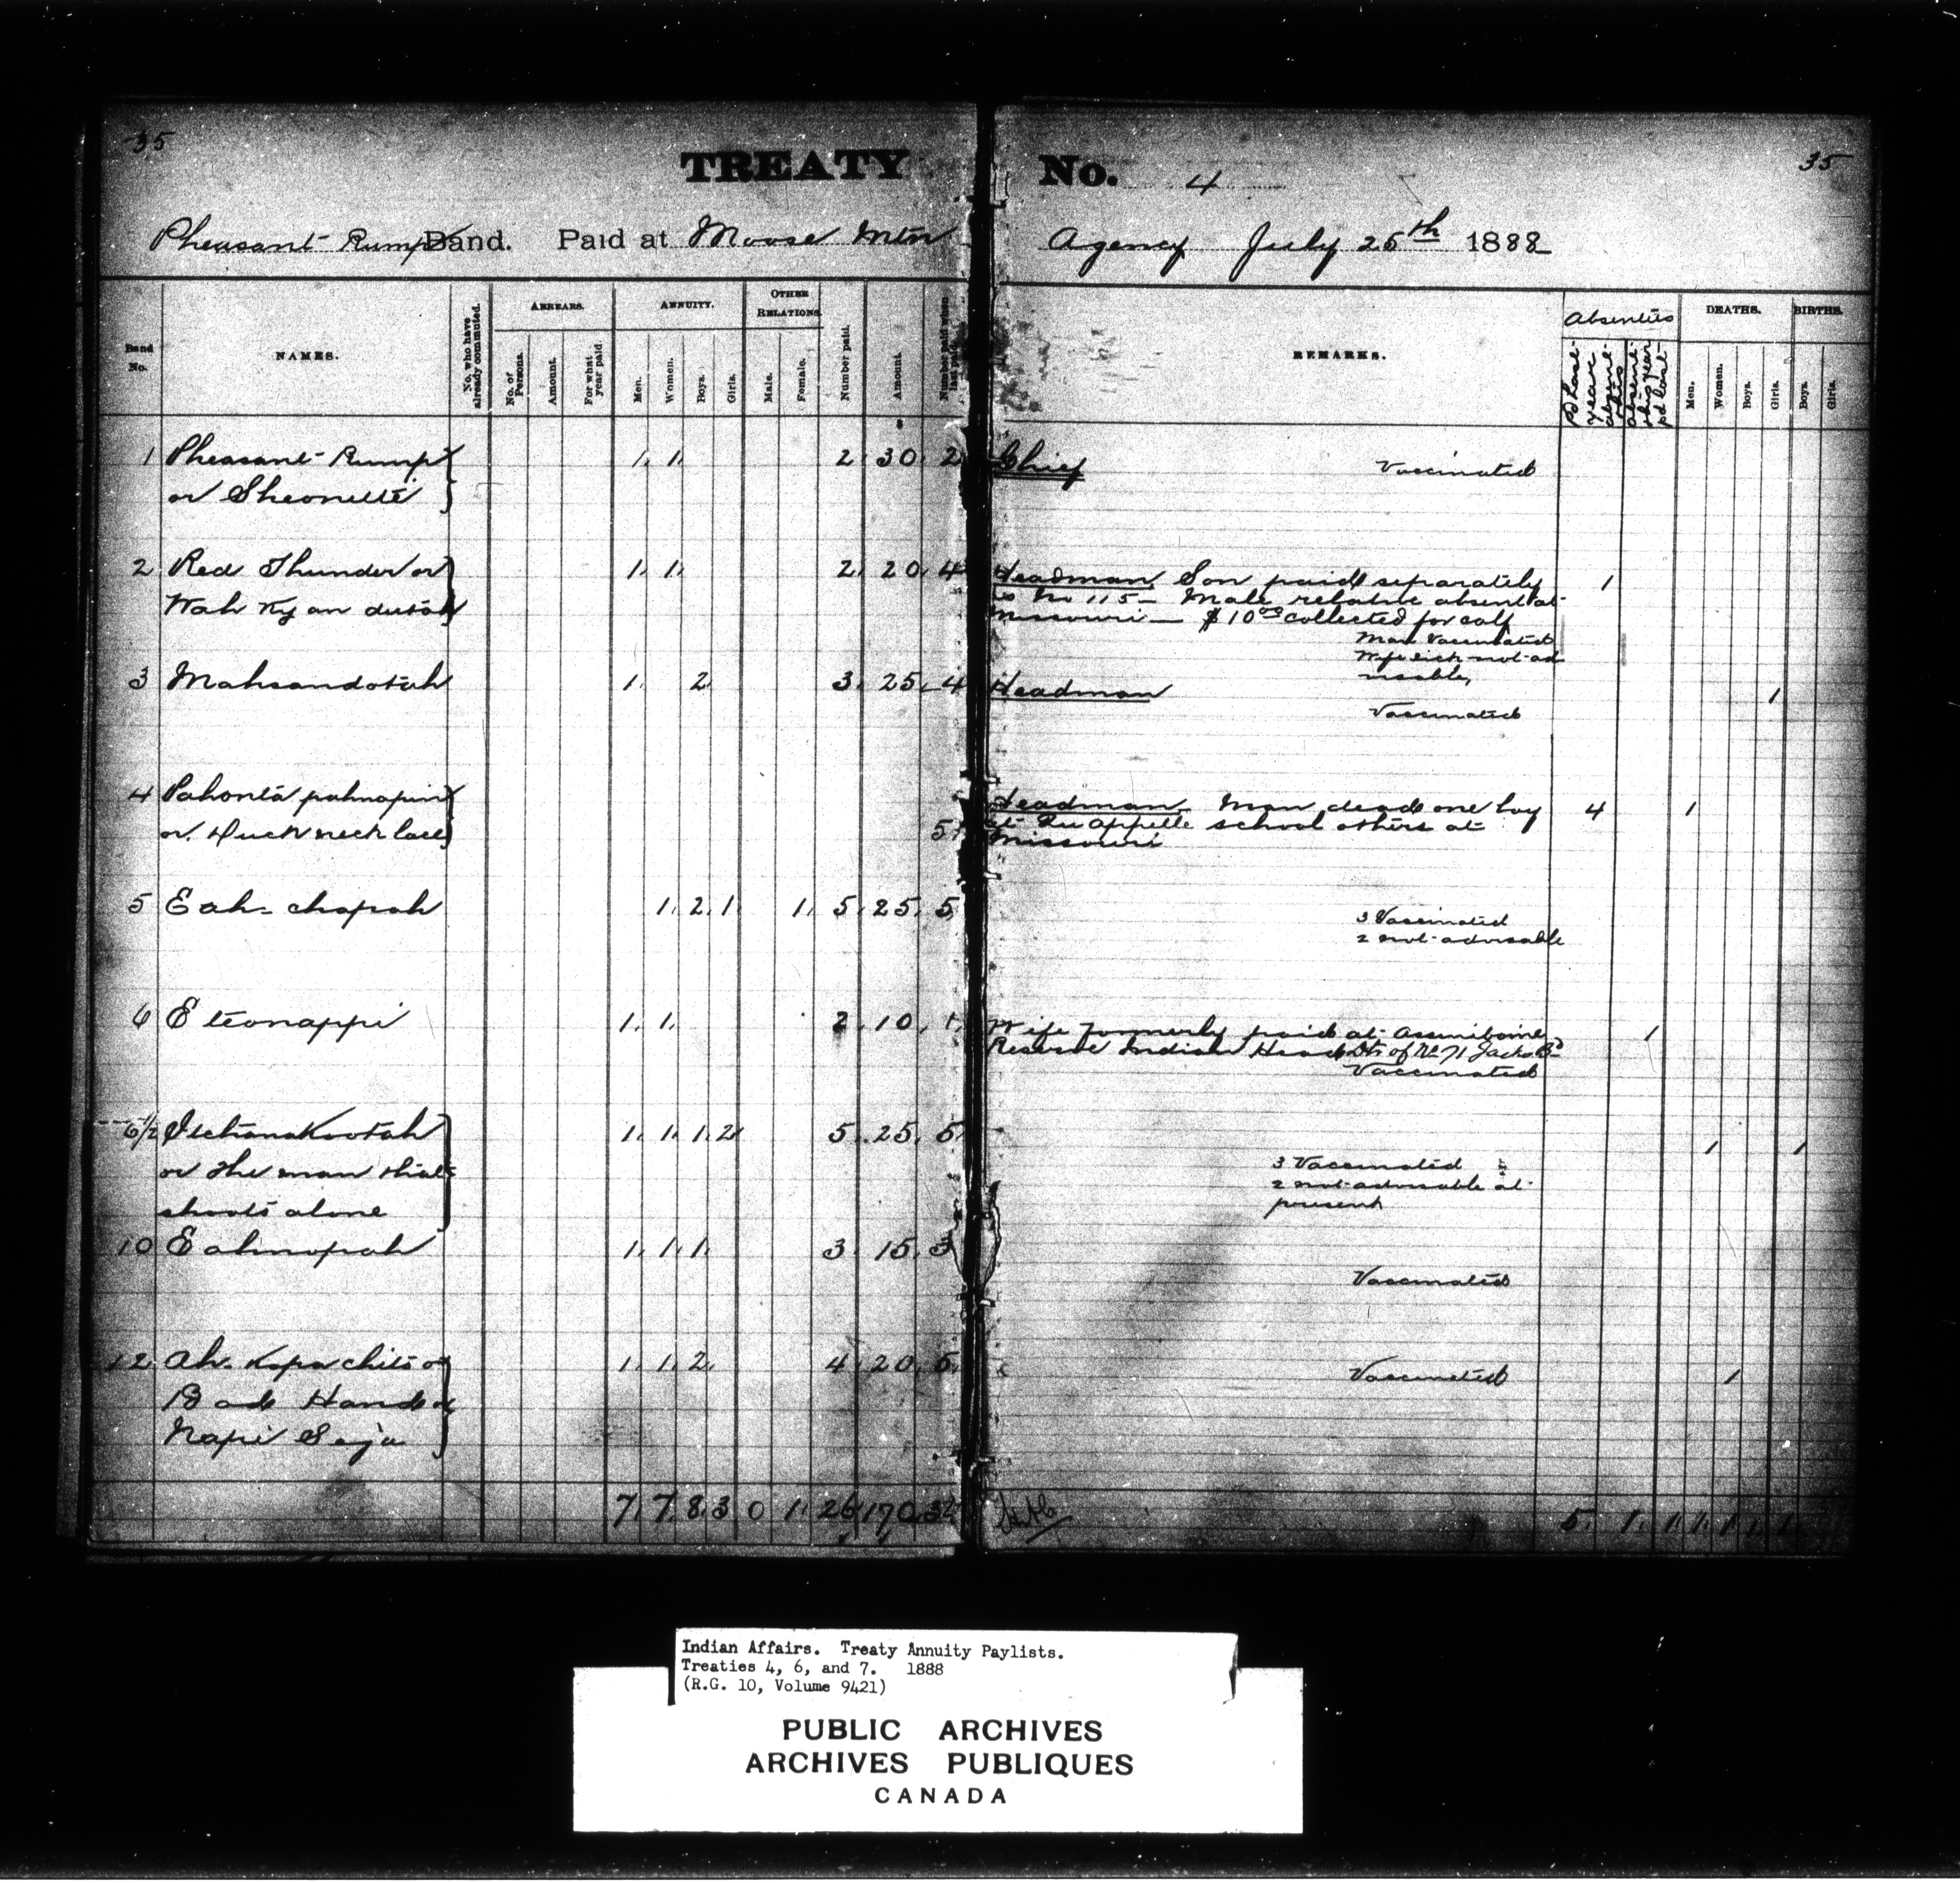 35
TREATY No. 4
35
Pheasant Rump Band. Paid at Moose Mtn Agency July 25th 1888
Band No.
NAMES.
No. who have already commuted.
ARREARS.
No. of Persons.
Amount.
For what year paid
ANNUITY.
Men.
Women.
Boys.
Girls.
OTHER RELATIONS.
Male.
Female.
Number paid.
Amount.
Number paid when last paid.
REMARKS.
Absentees
Pd last year absent this
absent this year pd last
DEATHS.
Men.
Women.
Boys.
Girls.
BIRTHS.
Boys.
Girls.
$
1 Pheasant Rump 1 1 2 30 2 Chief Vaccinated
or Sheonette
2 Red Thunder or 1 1 2 20 4 Headman Son paid separately 1
Wah Ky an dutah as No 115 – Male relative absent at
Missouri – $10.00 collected for calf
Man Vaccinated
Wife sick not ad
visable,
3 Mahsandotah 1 2 3 25 4 Headman 1
Vaccinated
4 Pahonta pahnapin Headman Man dead one boy 4 1
or Duck neck lace 5 at Qu'Appelle school others at
Missouri
5 Eah-chapah 1 2 1 1 5 25 5
3 Vaccinated
2 not advisable
6 Eteonappi 1 1 2 10 1 Wife formerly paid at Assiniboine 1
Reserve Indian Head Dtr of No 71 Jacks Bd
Vaccinated
6½ Itchanakootah 1 1 1 2 5 25 5 1 1
or the man that 3 Vaccinated
shoots alone 2 not advisable at
present
10 Eahnopah 1 1 1 3 15 3
Vaccinated
12 Ah. Kapa chits or 1 1 2 4 20 5 Vaccinated 1
Bad Hand or
Napi Seja
7 7 8 3 0 1 26 170 5 1 1 1 1 1 1
Indian Affairs. Treaty Annuity Paylists.
Treaties 4, 6, and 7. 1888
(R.G. 10, Volume 9421)
PUBLIC ARCHIVES
ARCHIVES PUBLIQUES
CANADA